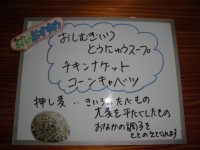 おしむぎいり
とうにゅうスープ
チキンナゲット
コーンキャベツ
押し麦‥
大麦を平たくしたもの
おなかの調子を
ととのえてくれます